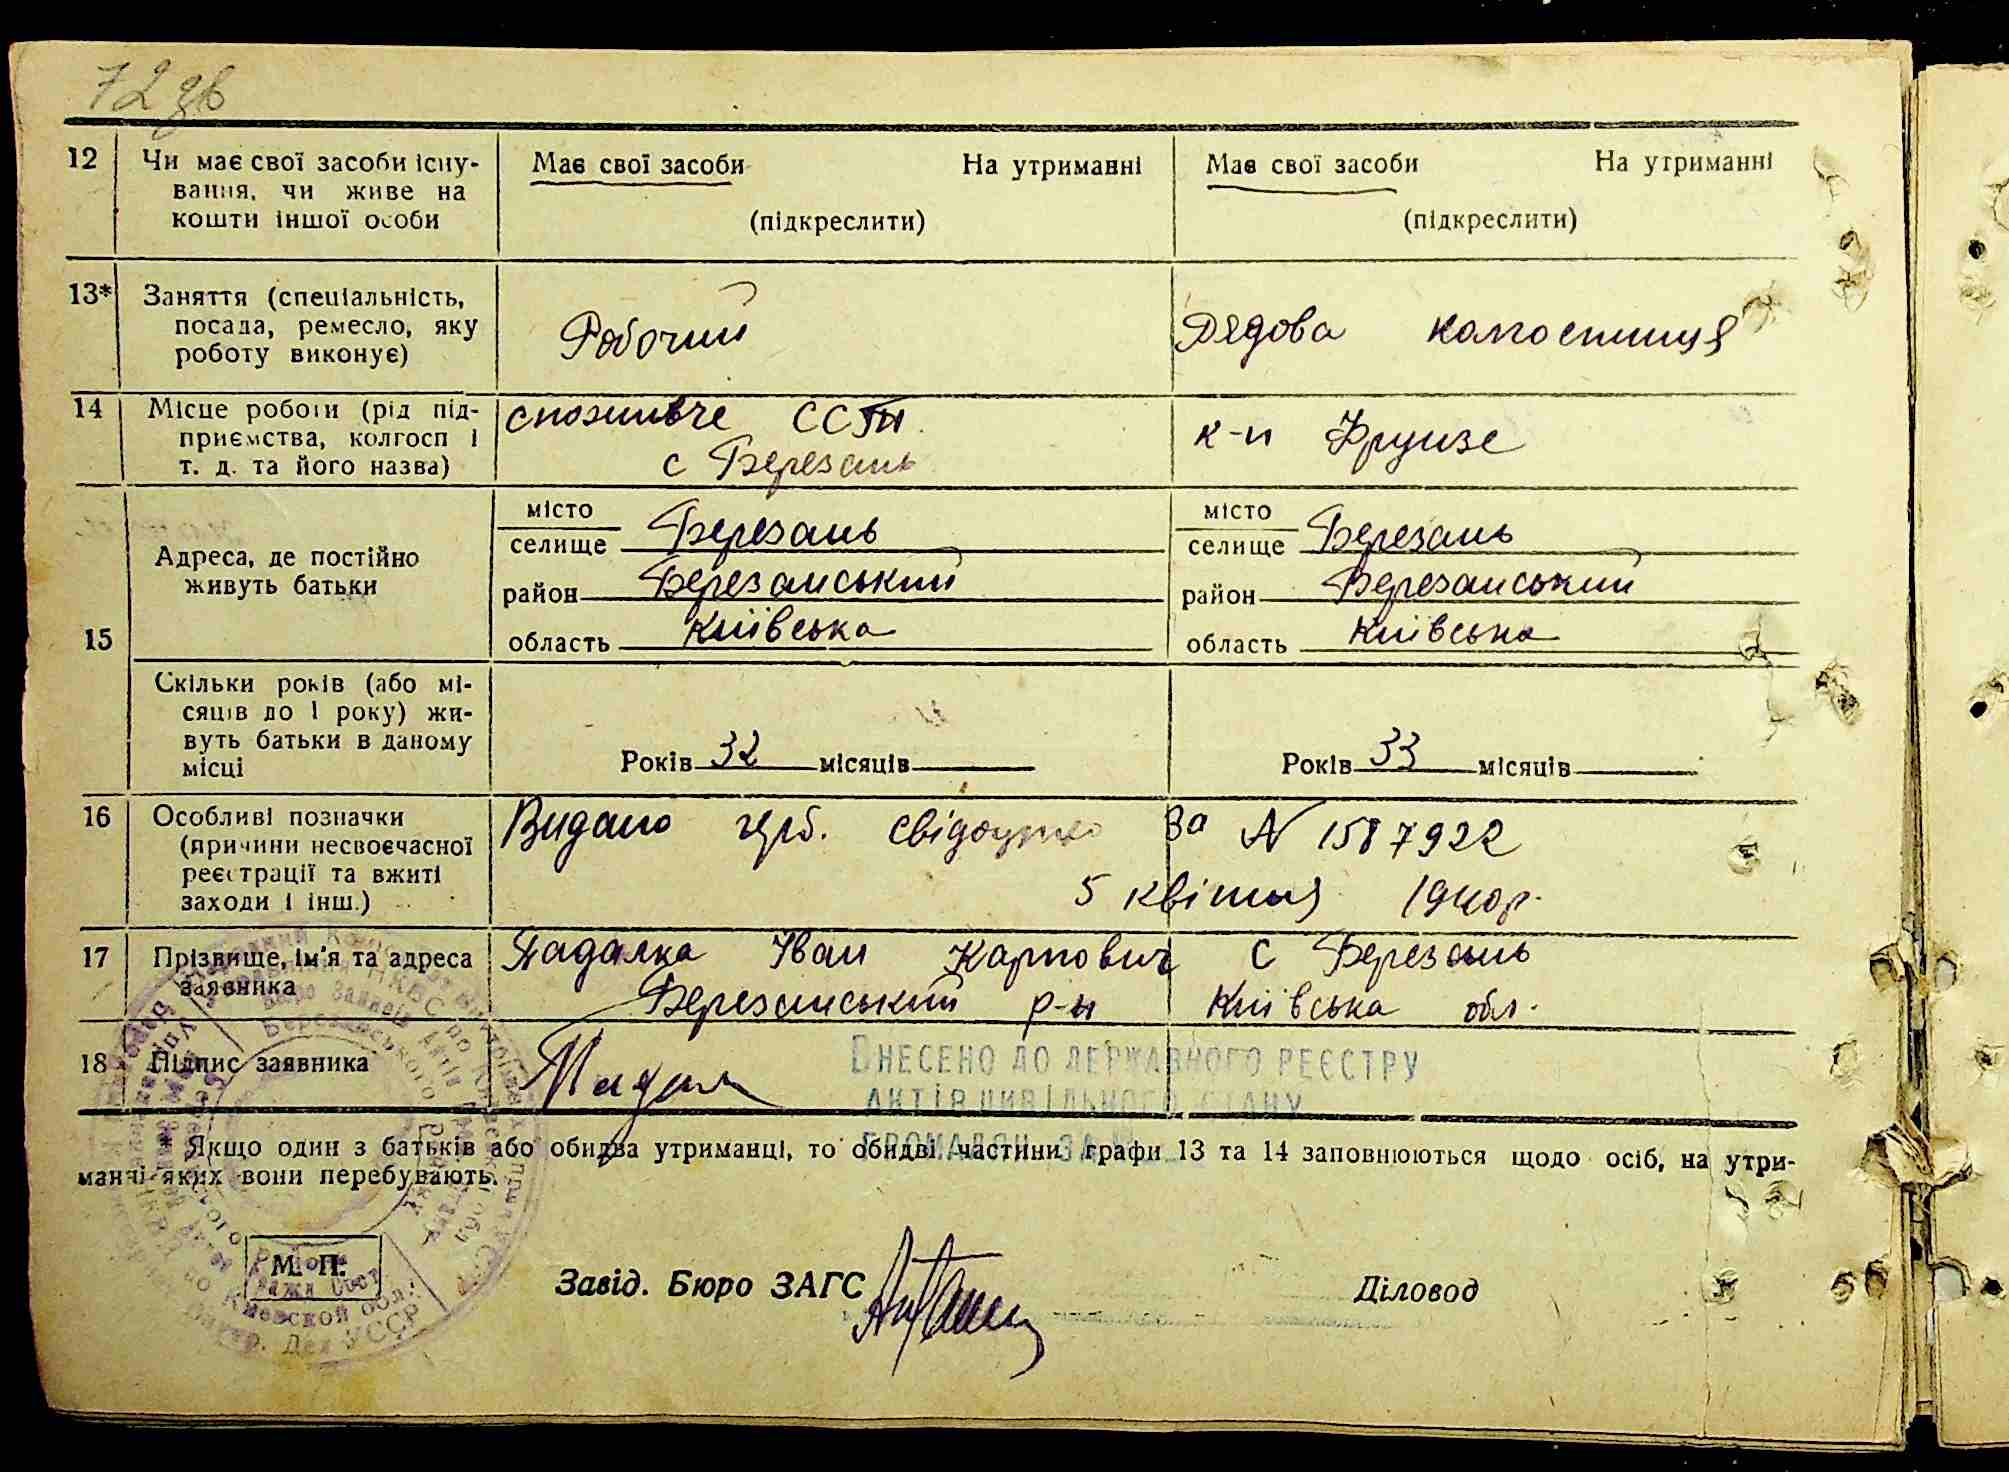 72 зв
12 Чи має свої засоби існу-
вання, чи живе на
кошти іншої особи
Має свої засоби На утриманні
(підкреслити)
Має свої засоби На утриманні
(підкреслити)
13* Заняття (спеціальність,
посада, ремесло, яку
роботу виконує)
Робочий
Рядова колгоспниця
14 Місце роботи (рід під-
приємства, колгосп і
т. д. та його назва)
споживче
с Березань
к-п Фрунзе
15 Адреса, де постійно
живуть батьки
місто
селище Березань
район Березанський
область Київська
місто
селище Березань
район Березанський
область Київська
Скільки років (або мі-
сяців до 1 року) жи-
вуть батьки в даному
місці
Років 32 місяців
Років 33 місяців
16 Особливі позначки
(причини несвоєчасної
реєстрації та вжиті
заходи і інш.)
Видано герб. свідоцтво За N 1587922
5 квітня 1940р.
17 Прізвище, ім'я та адреса
заявника
Падалка Іван Карпович с Березань
Березанський р-н Київська обл.
18 Підпис заявника
Падал
Внесено до державного реєстру
актів цивільного стану
громадян за №
* Якщо один з батьків або обидва утриманці, то обидві частини графи 13 та 14 заповнюються щодо осіб, на утри-
манні яких вони перебувають.
М. П.
Завід. Бюро ЗАГС
Діловод